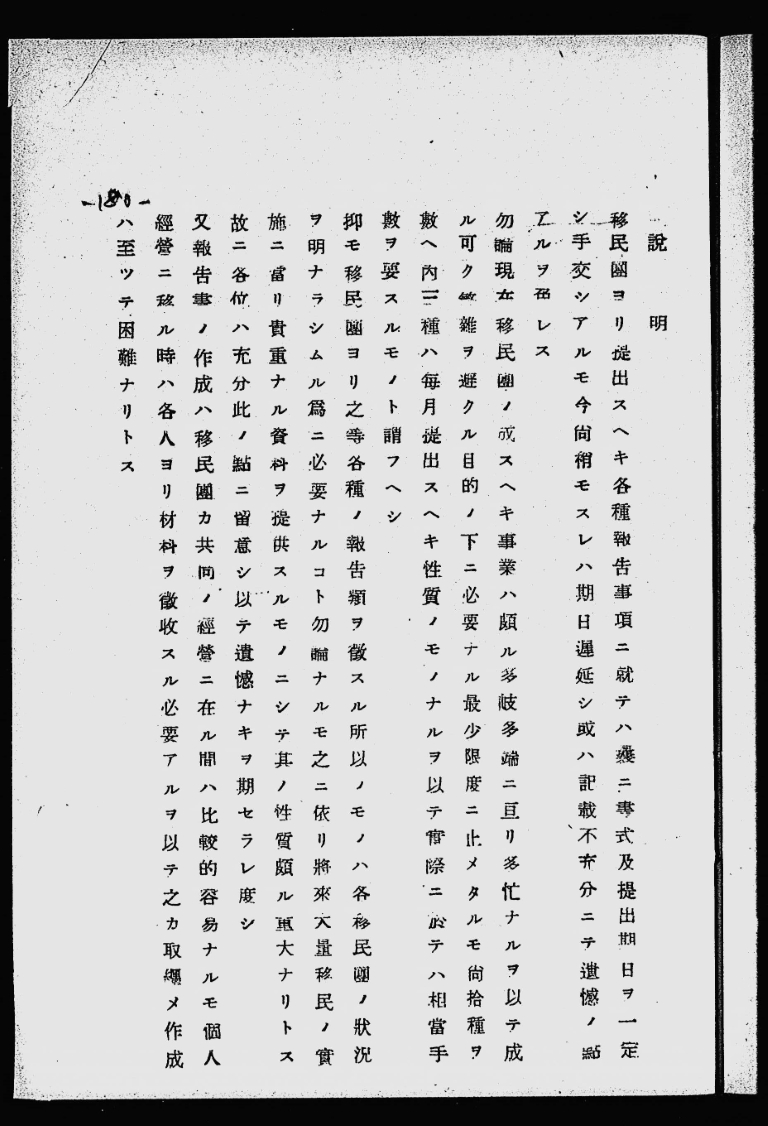 說明
移民團ヨリ提出スヘキ各種報告事項ニ就テハ曩ニ書式及提出期日ヲ一定
シ手交シアルモ今尙稍モスレハ期日遲延シ或ハ記載不充分ニテ遺憾ノ點
アルヲ免レス
勿論現在移民團ノ成スヘキ事業ハ頗ル多岐多端ニ亘リ多忙ナルヲ以テ成
ル可ク繁雜ヲ避クル目的ノ下ニ必要ナル最少限度ニ止メタルモ尙拾種ヲ
數ヘ內三種ハ每月提出スヘキ性質ノモノナルヲ以テ實際ニ於テハ相當手
數ヲ要スルモノト謂フヘシ
抑モ移民團ヨリ之等各種ノ報告類ヲ徵スル所以ノモノハ各移民團ノ狀況
ヲ明ナラシムル爲ニ必要ナルコト勿論ナルモ之ニ依リ將來大量移民ノ實
施ニ當リ貴重ナル資料ヲ提供スルモノニシテ其ノ性質頗ル重大ナリトス
故ニ各位ハ充分此ノ點ニ留意シ以テ遺憾ナキヲ期セラレ度シ
又報告書ノ作成ハ移民團カ共同ノ經營ニ在ル間ハ比較的容易ナルモ個人
經營ニ移ル時ハ各人ヨリ材料ヲ徵收スル必要アルヲ以テ之カ取纒メ作成
ハ至ツテ困難ナリトス
-180-